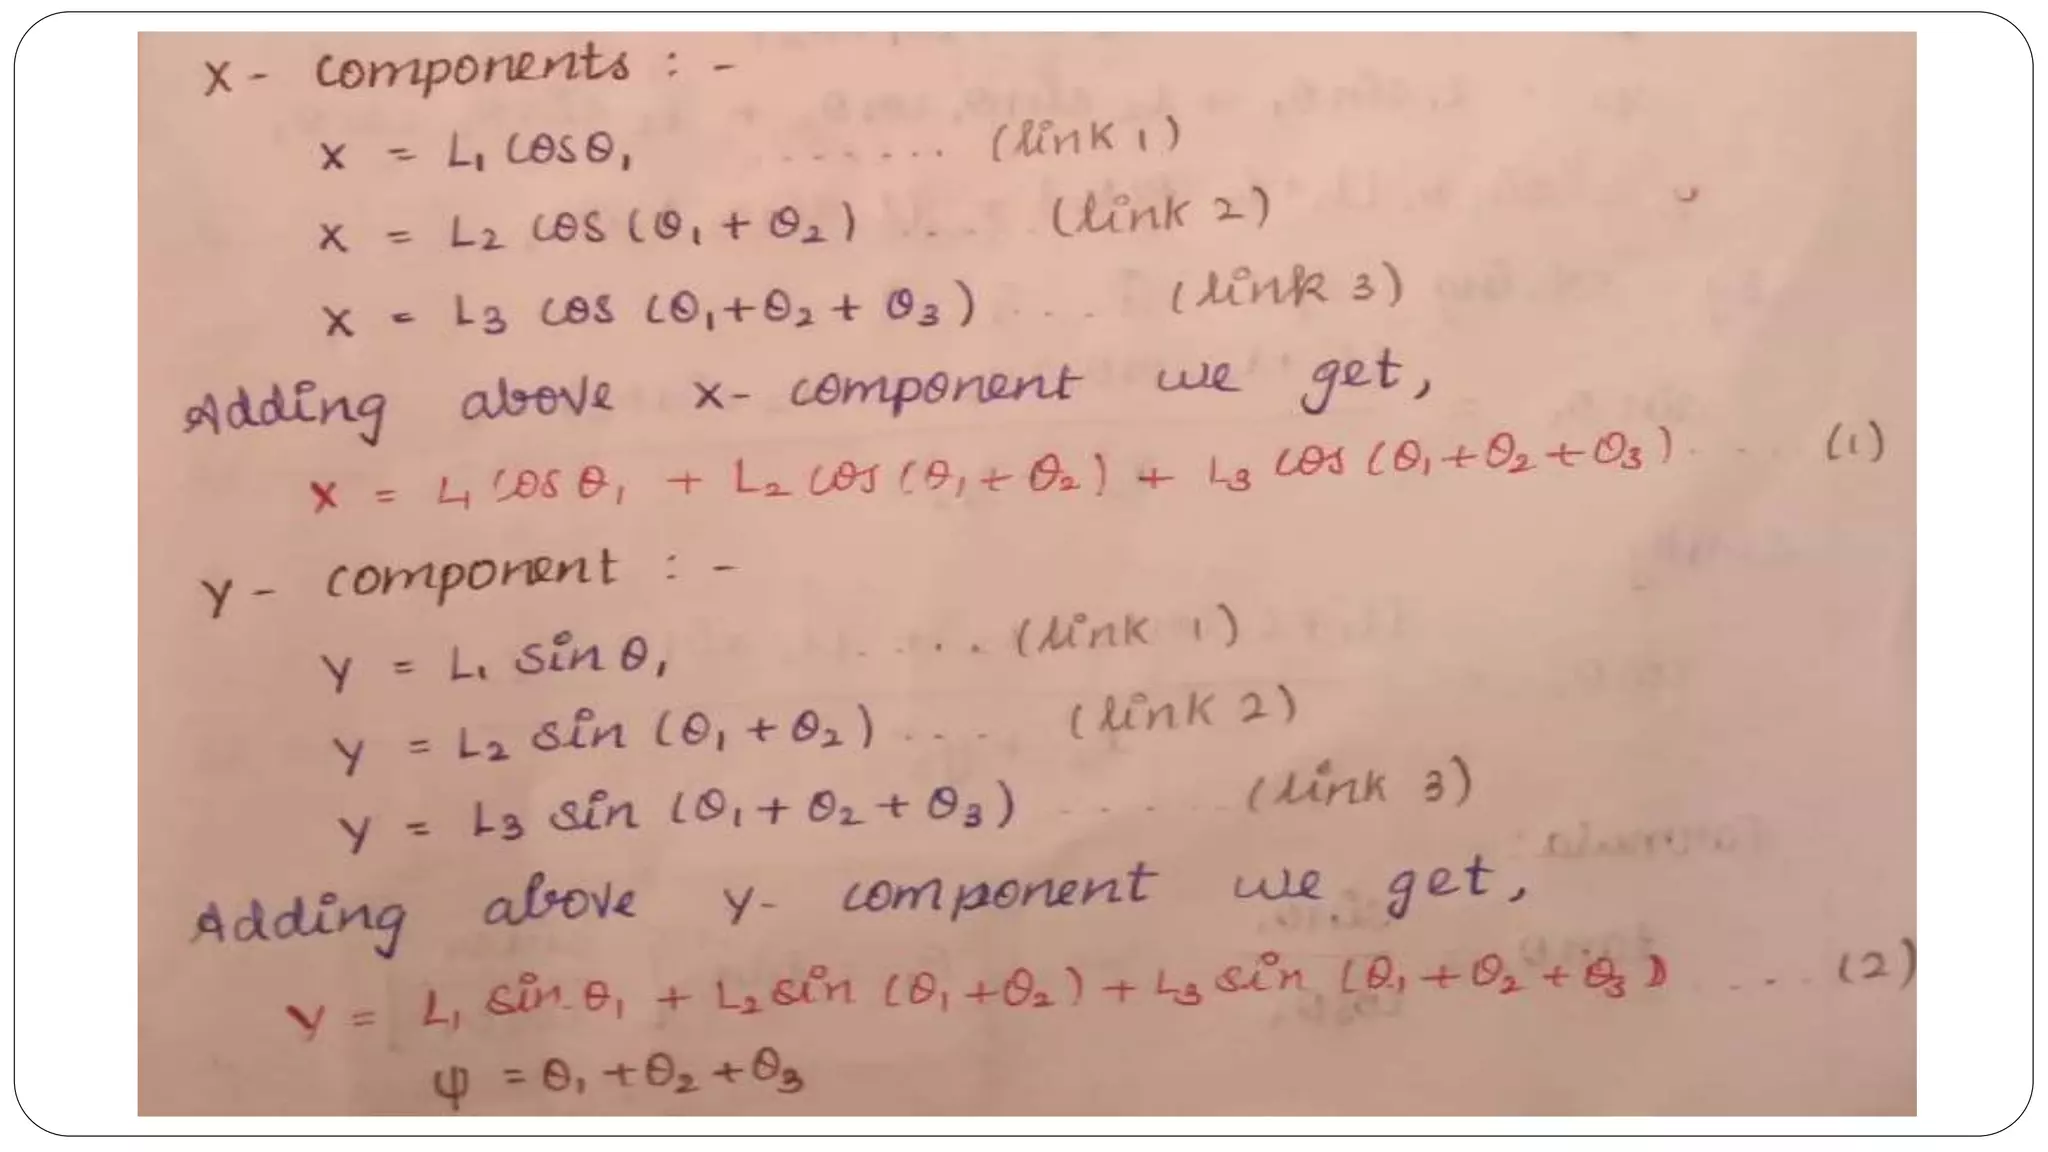 X - components : -
x = L₁ cosθ₁ ...... (link 1)
x = L₂ cos (θ₁ + θ₂) .... (link 2)
x = L₃ cos (θ₁+θ₂ + θ₃) ... (link 3)
Adding above x- component we get,
x = L₁ cos θ₁ + L₂ cos (θ₁ + θ₂) + L₃ cos (θ₁+θ₂+θ₃) .... (1)
Y - component : -
y = L₁ sin θ₁ ..... (link 1)
y = L₂ sin (θ₁ + θ₂) ... (link 2)
y = L₃ sin (θ₁ + θ₂ + θ₃) ..... (link 3)
Adding above y- component we get,
y = L₁ sin θ₁ + L₂ sin (θ₁ +θ₂) + L₃ sin (θ₁ + θ₂ + θ₃) .... (2)
ψ = θ₁ +θ₂ +θ₃